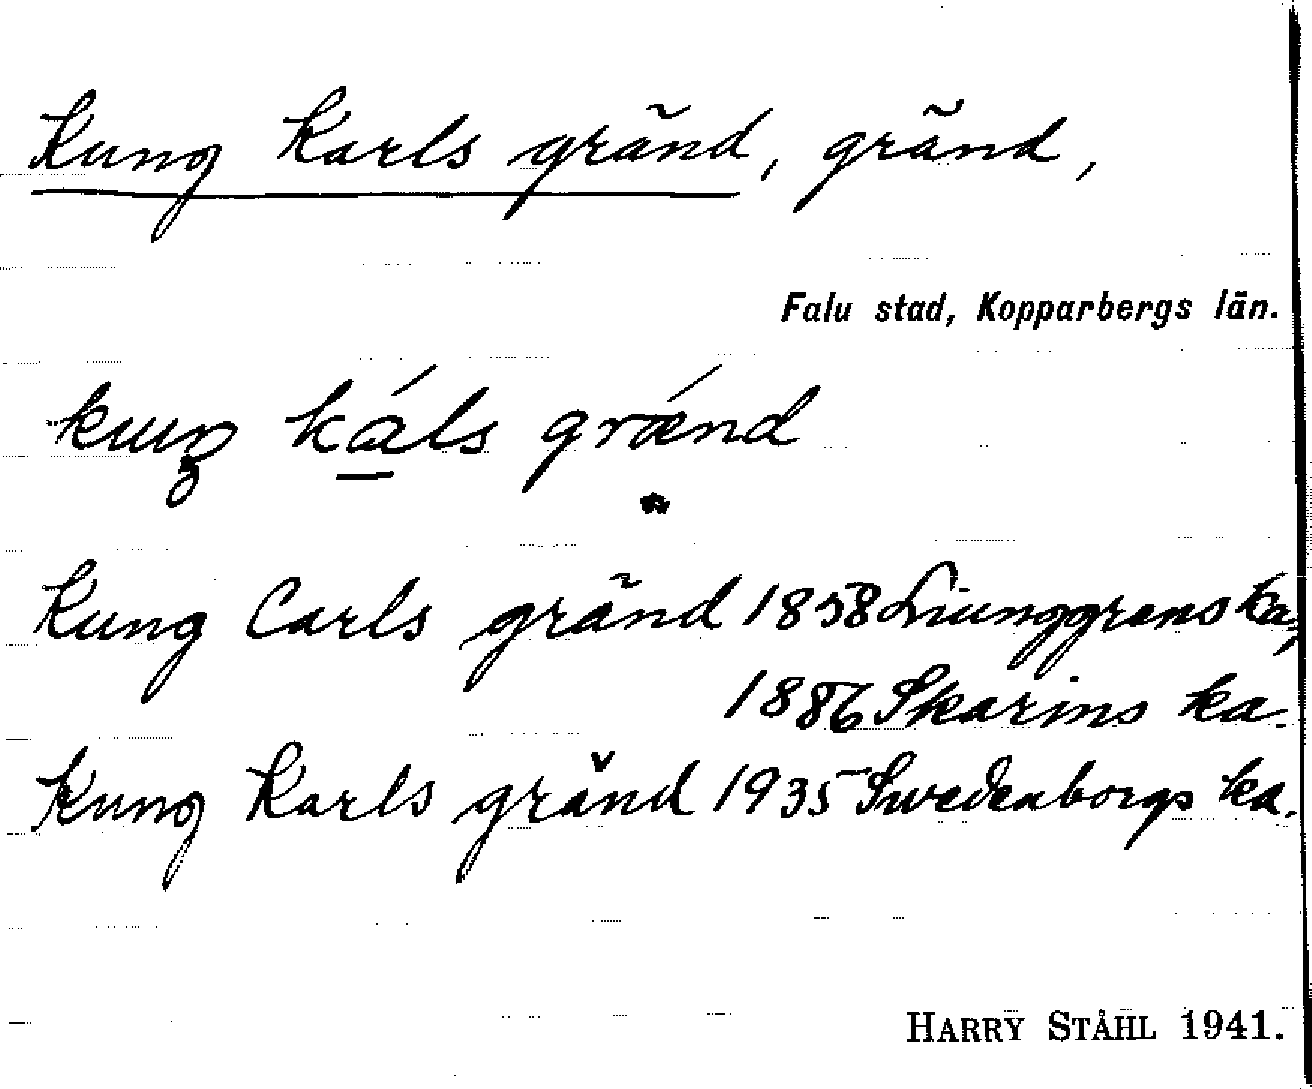 Kung Karls gränd, gränd,
Falu stad, Kopparbergs län.
kuŋ ká̲ls grǽnd
Kung Carls gränd 1858 Liunggrens ka,
1886 Skarins ka.
Kung Karls gränd 1935 Swedenborgs ka.
HARRY STÅHL 1941.